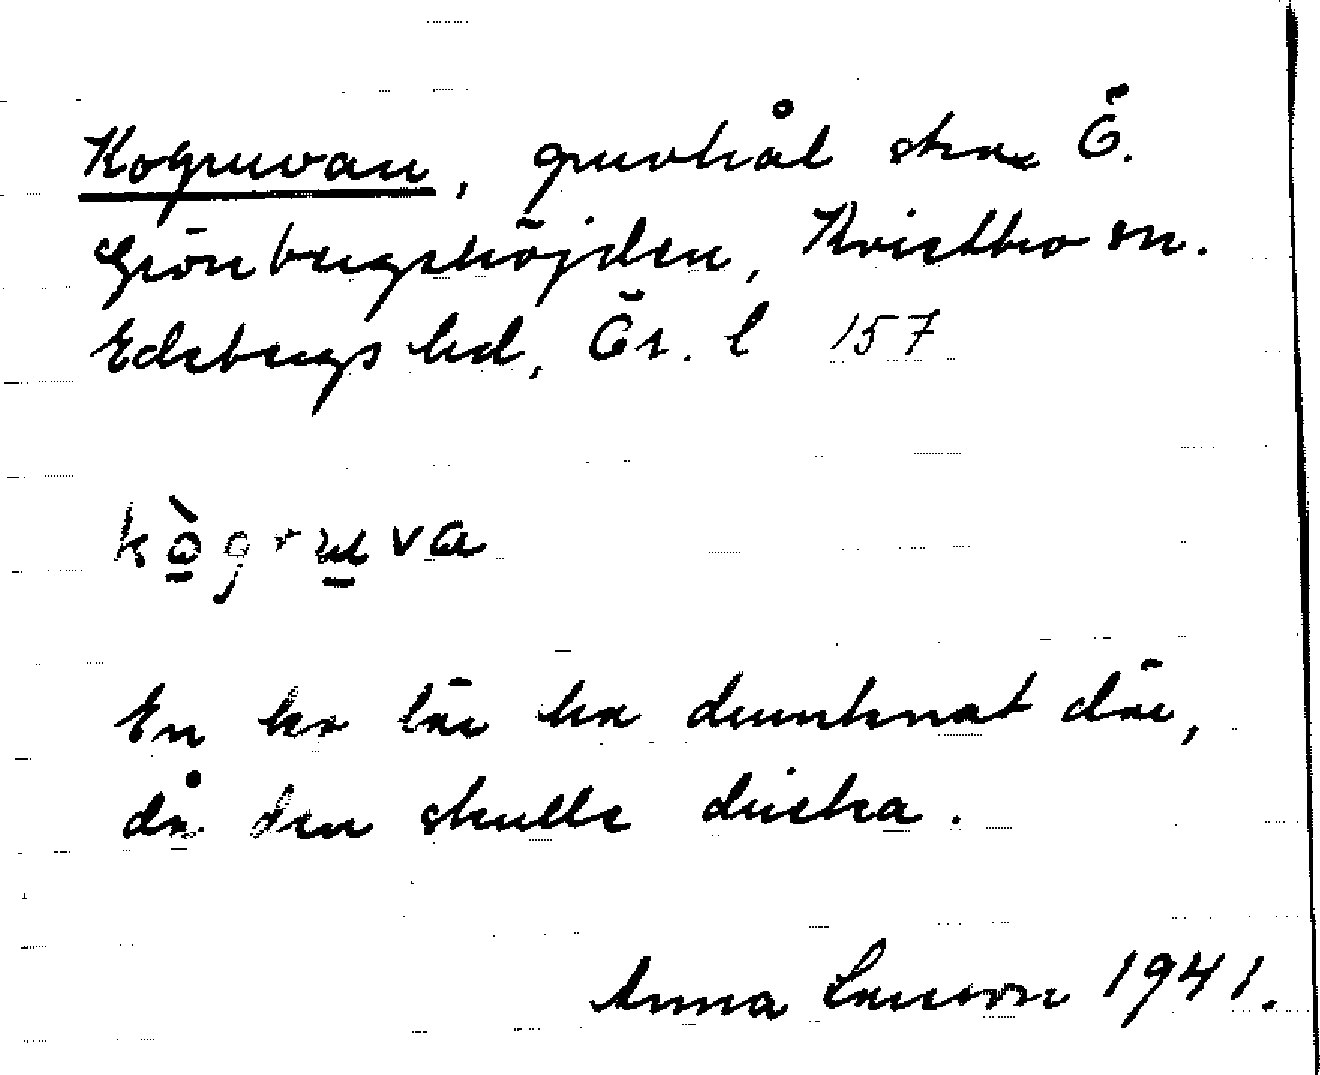 Kogruvan, gruvhål strax Ö.
Grönbergshöjden, Kvistbro sn.
Edsbergs hd, Ör. l 157
kò̱gru̱va
En ko lär ha drunknat där,
då den skulle dricka.
Anna Larsson 1941.